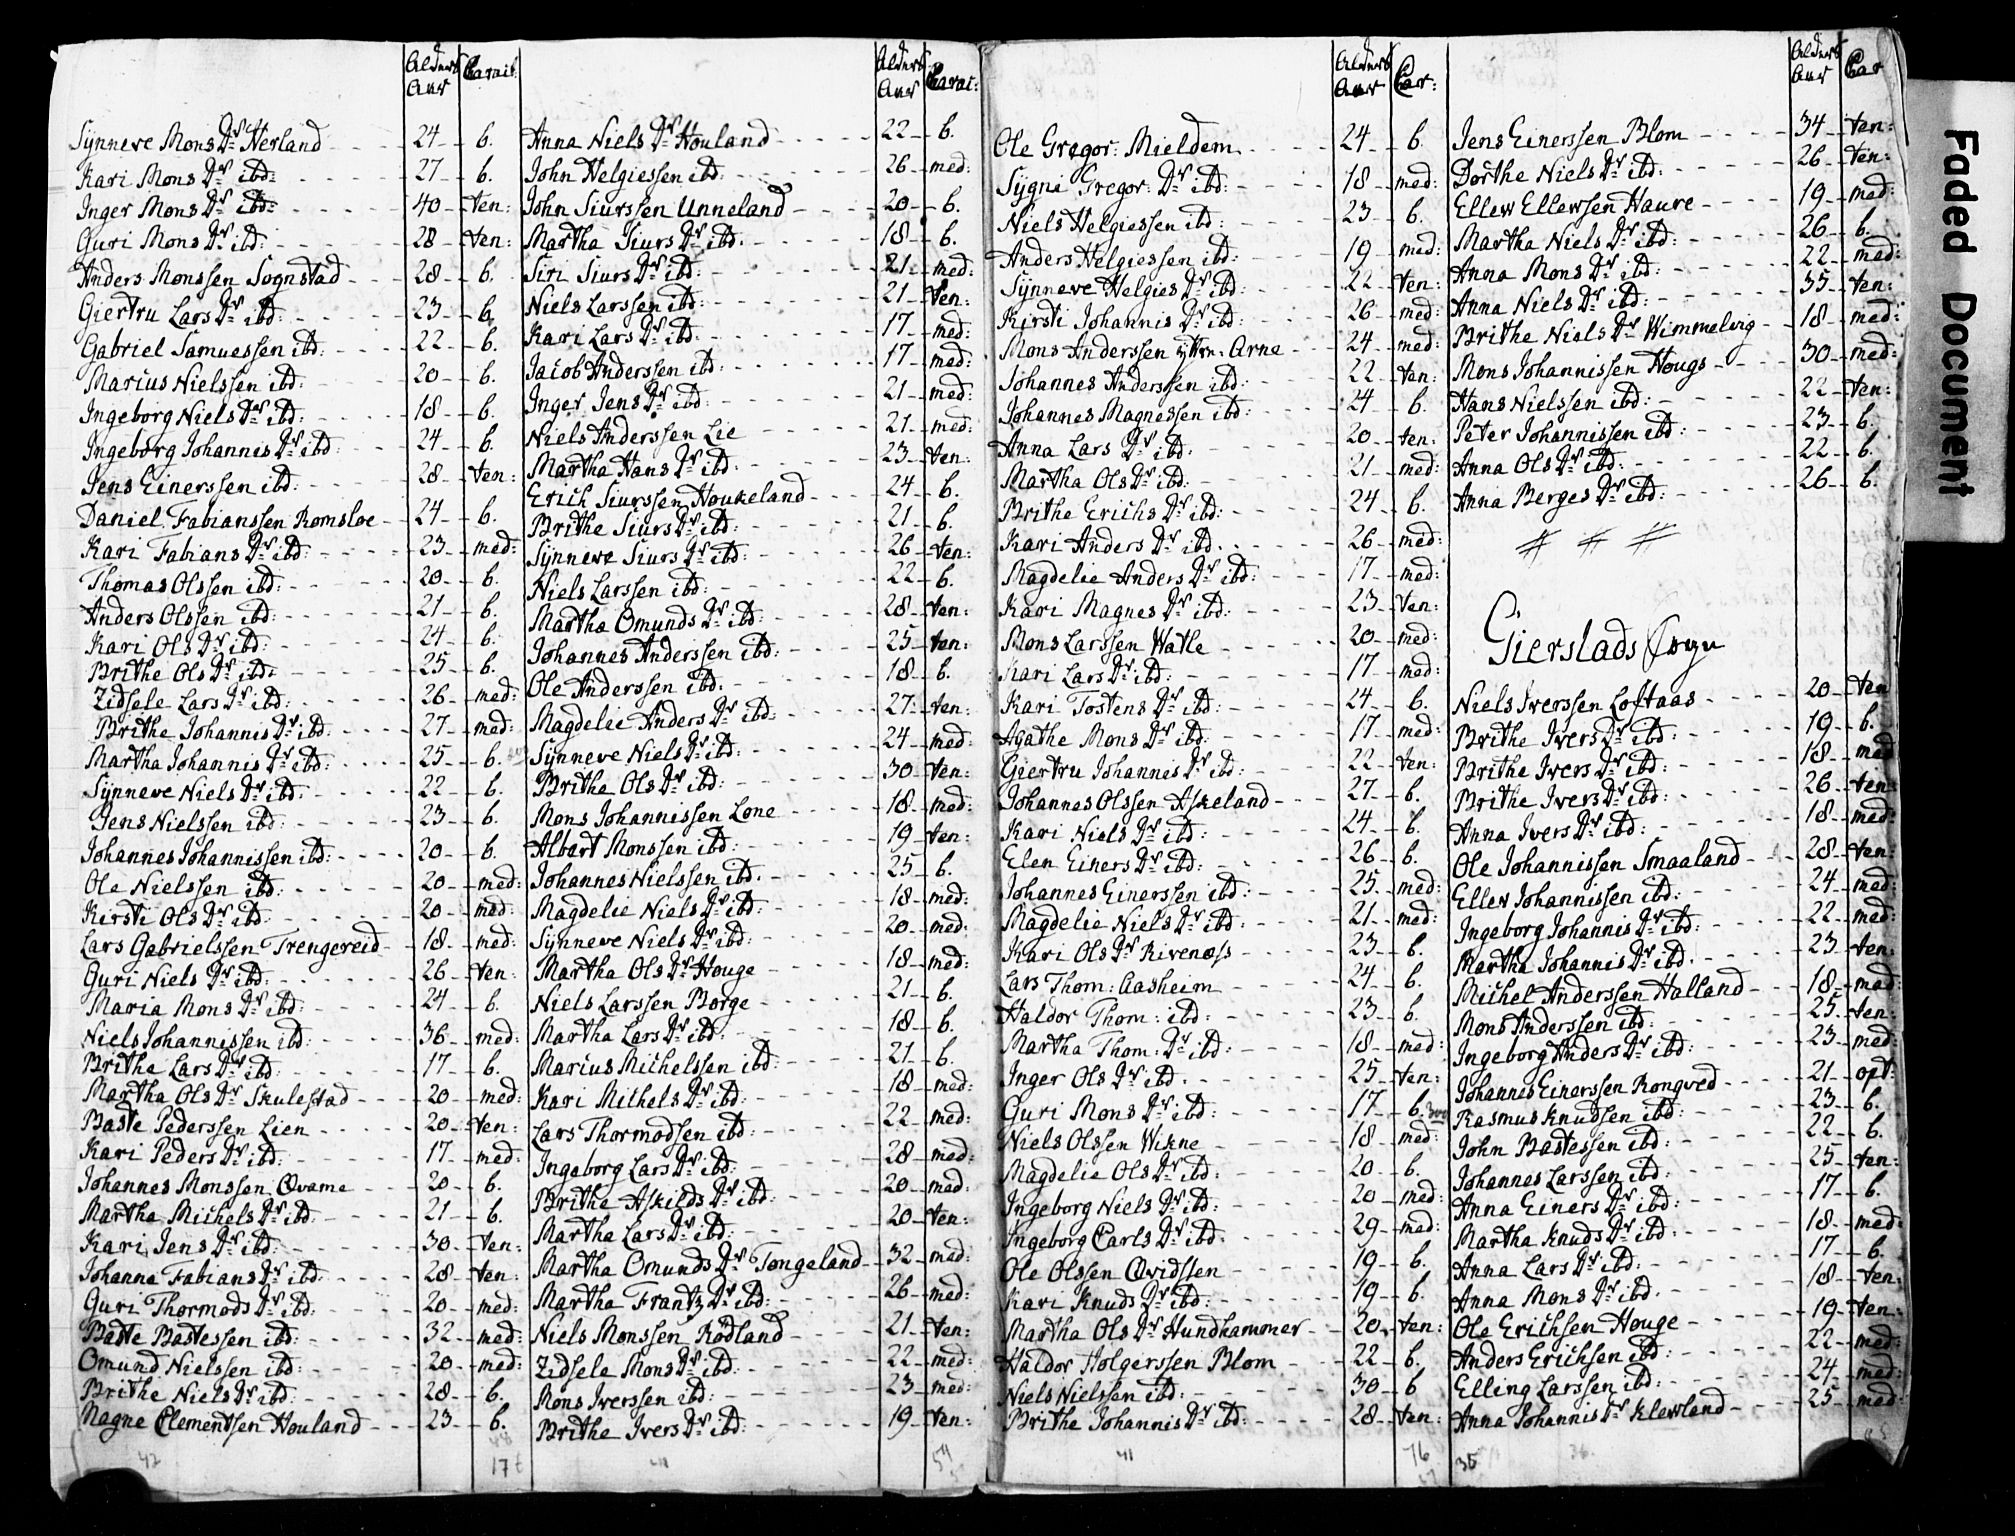 Alders Aar Carait:
Synneve Mons Dr Herland - - 24 - b.
Kari Mons Dr ibd: - - 27 - b.
Inger Mons Dr ibd: - - 40 - ten:
Guri Mons Dr ibd: - - 28 - ten:
Anders Monssen Sognstad - - 28 - b.
Giertru Lars Dr ibd: - - 23 - b.
Gabriel Samuessen ibd: - - 22 - b.
Marius Nielssen ibd: - - 20 - b.
Ingeborg Niels Dr ibd: - - 18 - b.
Ingeborg Johannis Dr ibd: - - 24 - b.
Jens Einerssen ibd: - - 28 - ten:
Daniel Fabianssen Romsloe - 24 - b.
Kari Fabians Dr ibd: - - 23 - med:
Thomas Olssen ibd: - - 20 - b.
Anders Olssen ibd: - - 21 - b.
Kari Ols Dr ibd: - - 24 - b.
Brithe Ols Dr ibd: - - 25 - b.
Zidsele Lars Dr ibd: - - 26 - med:
Brithe Johannis Dr ibd. - - 27 - med:
Martha Johannis Dr ibd: - - 25 - b.
Synneve Niels Dr ibd. - - 22 - b.
Jens Nielssen ibd: - - 23 - b.
Johannes Johannissen ibd: - - 20 - b.
Ole Nielssen ibd: - - 20 - med:
Kirsti Ols Dr ibd: - - 20 - med:
Lars Gabrielssen Trengereid - 18 - med:
Guri Niels Dr ibd: - - 26 - ten:
Maria Mons Dr ibd: - - 24 - b.
Niels Johannissen ibd: - - 36 - med:
Brithe Lars Dr ibd: - - 17 - b.
Martha Ols Dr Skulestad - - 20 - med:
Baste Pederssen Lien - - 20 - ten:
Kari Peders Dr ibd: - - 17 - med:
Johannes Monssen Qvame - - 20 - b.
Martha Michels Dr ibd: - - 21 - b.
Kari Jens Dr ibd: - - 30 - ten:
Johanna Fabians Dr ibd: - - 28 - ten:
Guri Thormods Dr ibd: - - 20 - med:
Baste Bastessen ibd: - - 32 - med:
Omund Nielssen ibd: - - 20 - med:
Brithe Niels Dr ibd: - - 28 - b.
Magne Clementsen Houland - - 23 - b.
42 17
Alders Aar Carac:
Anna Niels Dr Houland - - 22 - b.
John Helgiessen ibd: - - 26 - med:
John Siurssen Unneland - - 20 - b.
Martha Siurs Dr ibd: - - 18 - b.
Siri Siurs Dr ibd: - - 21 - med:
Niels Larssen ibd: - - 21 - ten:
Kari Lars Dr ibd: - - 17 - med:
Jacob Anderssen ibd: - - 17 - med:
Inger Jens Dr ibd: - - 21 - med:
Niels Anderssen Lie - - 21 - med:
Martha Hans Dr ibd: - - 23 - ten:
Erich Siurssen Houkeland - - 24 - b.
Brithe Siurs Dr ibd: - - 21 - b.
Synneve Siurs Dr ibd: - - 26 - ten:
Niels Larssen ibd: - - 22 - b.
Martha Omunds Dr ibd: - - 28 - ten:
Johannes Anderssen ibd: - - 25 - ten:
Ole Anderssen ibd: - - 18 - b.
Magdelie Anders Dr ibd: - - 27 - ten:
Synneve Niels Dr ibd: - - 24 - med:
Britha Ols Dr ibd: - - 30 - ten:
Mons Johannissen Lone - - 18 - med:
Albert Monssen ibd: - - 19 - ten:
Johannes Nielssen ibd. - - 25 - b.
Magdelie Niels Dr ibd: - - 18 - med:
Synneve Niels Dr ibd: - - 20 - med:
Martha Ols Dr Houge - - 18 - med:
Niels Larssen Borge - - 21 - b.
Martha Lars Dr ibd: - - 18 - b.
Marius Michelssen ibd: - - 21 - b.
Kari Mithels Dr ibd: - - 18 - med:
Lars Thormodsen ibd: - - 22 - med:
Ingeborg Lars Dr ibd: - - 28 - med:
Brithe Askilds Dr ibd: - - 20 - med:
Martha Lars Dr ibd: - - 20 - ten:
Martha Omunds Dr Tongeland - 32 - med:
Martha Frantz Dr ibd: - - 26 - med:
Niels Monssen Rödland - - 21 - ten:
Zidsele Mons Dr ibd: - - 22 - med:
Mons Iverssen ibd: - - 23 - med:
Brithe Ivers Dr ibd: - - 19 - ten:
54
Alders Aar Car:
Ole Gregor: Mieldem - - 24 - b.
Sygni Gregor: Dr ibd: - - 18 - med:
Niels Helgiessen ibd: - - 23 - b.
Anders Helgiessen ibd: - - 19 - med:
Synneve Helgies Dr ibd: - - 22 - ten:
Kirsti Johannis Dr ibd: - - 26 - med:
Mons Anderssen yttre: Arne - - 24 - med:
Johannes Anderssen ibd: - - 22 - ten:
Johannes Magnessen ibd: - - 24 - b.
Anna Lars Dr ibd: - 20 - ten:
Martha Ols Dr ibd: - - 21 - med:
Brithe Erichs Dr ibd: - - 24 - b.
Kari Anders Dr ibd. - - 26 - med:
Magdelie Anders Dr ibd: - - 17 - med:
Kari Magnes Dr ibd: - - 23 - ten:
Mons Larssen Watle - - 20 - med:
Kari Lars Dr ibd: - - 17 - med:
Kari Tostens Dr ibd: - - 24 - b.
Agathe Mons Dr ibd: - - 17 - med:
Giertru Johannis Dr ibd: - - 22 - ten:
Johannes Olssen Askeland - - 27 - b.
Kari Niels Dr ibd: - - 24 - b.
Elen Einers Dr ibd: - - 26 - b.
Johannes Einerssen ibd: - - 25 - med:
Magdelie Niels Dr ibd: - - 21 - med:
Kari Ols Dr Rivenæss - - 23 - b.
Lars Thom: Aasheim - - 24 - b.
Haldor Thom: ibd: - - 23 - b.
Martha Thom: Dr ibd: - - 18 - med:
Inger Ols Dr ibd. - - 25 - ten:
Guri Mons Dr ibd: - - 17 - b. 300
Niels Olssen Wikne - - 18 - med:
Magdelie Ols Dr ibd: - - 20 - b.
Ingeborg Niels Dr ibd: - - 20 - med:
Ingeborg Carls Dr ibd. - - 29 - med:
Ole Olssen Qvidssen - - 19 - b.
Kari Knuds Dr ibd: - - 19 - b.
Martha Ols Dr Hundhammer - - 20 - ten:
Haldor Holgerssen Blom - - 22 - b.
Niels Nielssen ibd: - - 30 - b
Brithe Johannis Dr ibd: - - 28 - ten:
41 76
Alders Aar Car
Jens Einerssen Blom - - 34 - ten:
Dorthe Niels Dr ibd: - - 26 - ten:
Ellew Ellewsen Haure - - 19 - med:
Martha Niels Dr ibd: - - 26 - b.
Anna Mons Dr ibd: - - 22 - med:
Anna Niels Dr ibd: - - 35 - ten:
Brithe Niels Dr Wimmelvig - - 18 - med:
Mons Johannissen Hougs - - 30 - med:
Hans Nielssen ibd: - - 22 - ten:
Peter Johannissen ibd: - - 23 - b.
Anna Ols Dr ibd: - - 22 - b.
Anna Berges Dr ibd: - - 26 - b.
# # #
Gierstads Sogn
Niels Iverssen Loftaas - - 20 - ten
Brithe Ivers Dr ibd: - - 19 - b.
Brithe Ivers Dr ibd: - - 18 - med
Brithe Ivers Dr ibd: - - 26 - ten:
Anna Ivers Dr ibd: - - 18 - med:
Ole Johannissen Smaaland - - 28 - ten:
Ellev Johannissen ibd: - - 24 - med:
Ingeborg Johannis Dr ibd: - - 22 - med:
Martha Johannis Dr ibd. - - 23 - ten:
Michel Anderssen Halland - - 18 - med:
Mons Anderssen ibd: - - 25 - ten:
Ingeborg Anders Dr ibd: - - 23 - med:
Johannes Einerssen Rongved - - 21 - opt:
Rasmus Knudsen ibd: - - 23 - b.
John Bastessen ibd: - - 22 - b.
Johannes Larssen ibd: - - 25 - ten:
Anna Einers Dr ibd: - - 17 - b.
Martha Knuds Dr ibd: - - 18 - med:
Anna Lars Dr ibd: - - 17 - b.
Anna Mons Dr ibd: - - 18 - ten:
Ole Erichsen Houge - - 19 - ten:
Anders Erichsen ibd: - - 22 - med:
Elling Larssen ibd: - - 24 - med:
Anna Johannis Dr Klewland - - 25 - med:
35 36.
Faded Document